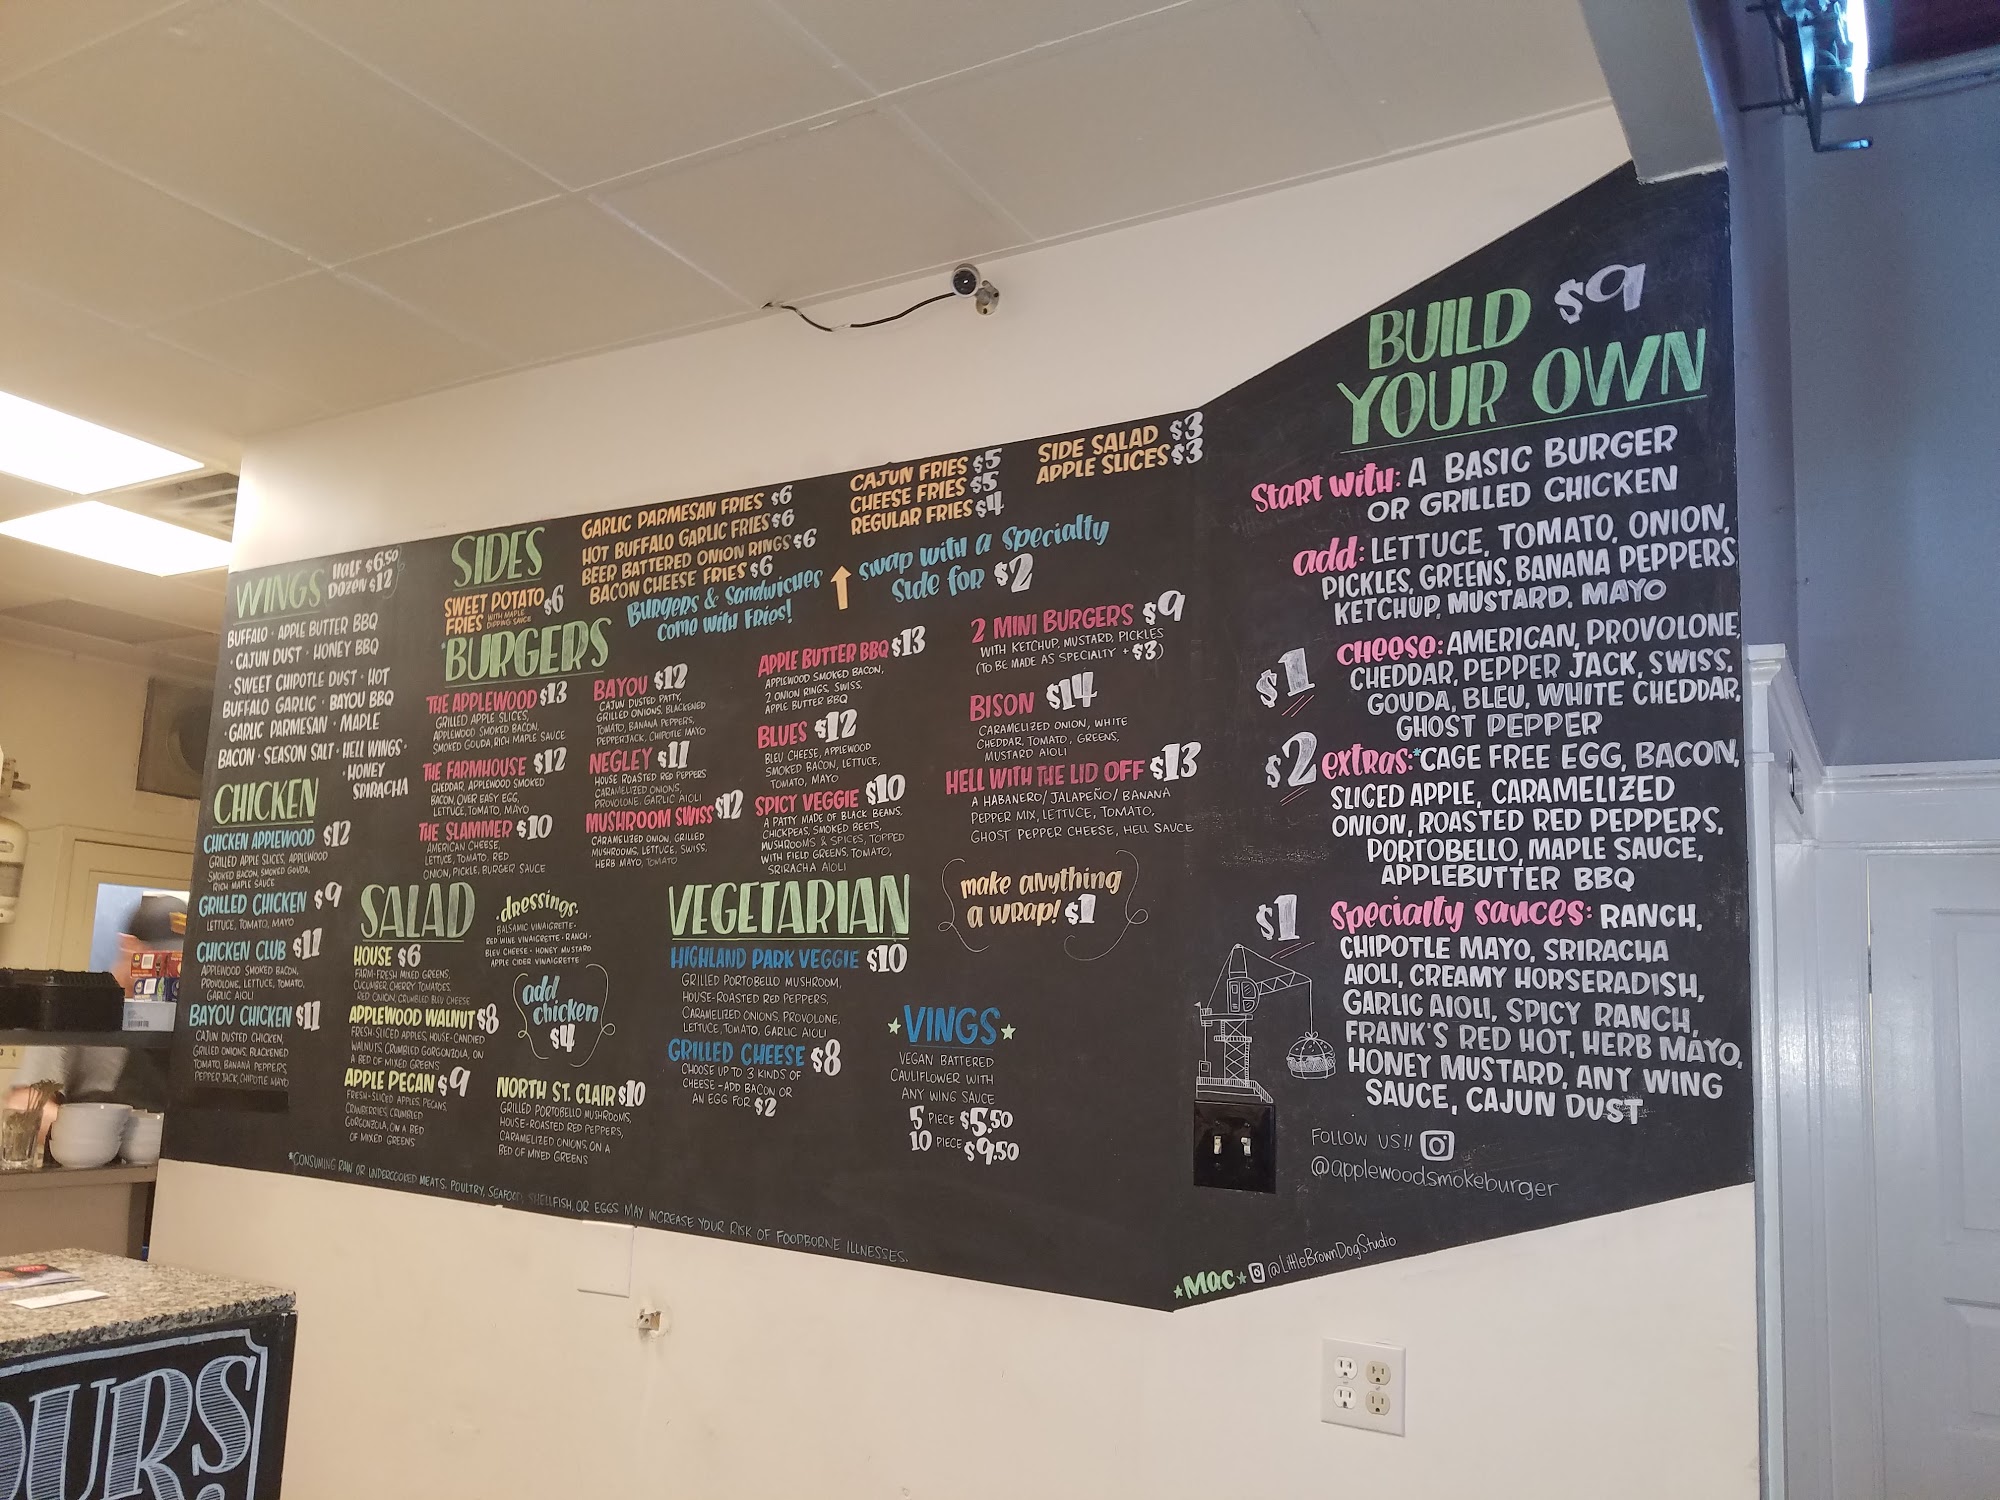 WINGS
HALF $6.50
DOZEN $12
BUFFALO · APPLE BUTTER BBQ
· CAJUN DUST · HONEY BBQ
· SWEET CHIPOTLE DUST · HOT
BUFFALO GARLIC · BAYOU BBQ
· GARLIC PARMESAN · MAPLE
BACON · SEASON SALT · HELL WINGS ·
· HONEY
SRIRACHA
CHICKEN
CHICKEN APPLEWOOD $12
GRILLED APPLE SLICES, APPLEWOOD
SMOKED BACON, SMOKED GOUDA,
RICH MAPLE SAUCE
GRILLED CHICKEN $9
LETTUCE, TOMATO, MAYO
CHICKEN CLUB $11
APPLEWOOD SMOKED BACON,
PROVOLONE, LETTUCE, TOMATO,
GARLIC AIOLI
BAYOU CHICKEN $11
CAJUN DUSTED CHICKEN,
GRILLED ONIONS, BLACKENED
TOMATO, BANANA PEPPERS,
PEPPER JACK, CHIPOTLE MAYO
SIDES
SWEET POTATO
FRIES $6
WITH MAPLE
DIPPING SAUCE
GARLIC PARMESAN FRIES $6
HOT BUFFALO GARLIC FRIES $6
BEER BATTERED ONION RINGS $6
BACON CHEESE FRIES $6
CAJUN FRIES $5
CHEESE FRIES $5
REGULAR FRIES $4
SIDE SALAD $3
APPLE SLICES $3
BURGERS & SANDWICHES
COME WITH FRIES!
SWAP WITH A SPECIALTY
SIDE FOR $2
*BURGERS
THE APPLEWOOD $13
GRILLED APPLE SLICES,
APPLEWOOD SMOKED BACON,
SMOKED GOUDA, RICH MAPLE SAUCE
THE FARMHOUSE $12
CHEDDAR, APPLEWOOD SMOKED
BACON, OVER EASY EGG,
LETTUCE, TOMATO, MAYO
THE SLAMMER $10
AMERICAN CHEESE,
LETTUCE, TOMATO, RED
ONION, PICKLE, BURGER SAUCE
BAYOU $12
CAJUN DUSTED PATTY,
GRILLED ONIONS, BLACKENED
TOMATO, BANANA PEPPERS,
PEPPERJACK, CHIPOTLE MAYO
NEGLEY $11
HOUSE ROASTED RED PEPPERS
CARAMELIZED ONIONS,
PROVOLONE, GARLIC AIOLI
MUSHROOM SWISS $12
CARAMELIZED ONION, GRILLED
MUSHROOMS, LETTUCE, SWISS,
HERB MAYO, TOMATO
APPLE BUTTER BBQ $13
APPLEWOOD SMOKED BACON,
2 ONION RINGS, SWISS,
APPLE BUTTER BBQ
BLUES $12
BLEU CHEESE, APPLEWOOD
SMOKED BACON, LETTUCE,
TOMATO, MAYO
SPICY VEGGIE $10
A PATTY MADE OF BLACK BEANS,
CHICKPEAS, SMOKED BEETS,
MUSHROOMS & SPICES, TOPPED
WITH FIELD GREENS, TOMATO,
SRIRACHA AIOLI
2 MINI BURGERS $9
WITH KETCHUP, MUSTARD, PICKLES
(TO BE MADE AS SPECIALTY + $3)
BISON $14
CARAMELIZED ONION, WHITE
CHEDDAR, TOMATO, GREENS,
MUSTARD AIOLI
HELL WITH THE LID OFF $13
A HABANERO/JALAPEÑO/BANANA
PEPPER MIX, LETTUCE, TOMATO,
GHOST PEPPER CHEESE, HELL SAUCE
MAKE ANYTHING
A WRAP! $1
SALAD
· DRESSINGS ·
BALSAMIC VINAIGRETTE ·
RED WINE VINAIGRETTE · RANCH ·
BLEU CHEESE · HONEY MUSTARD
APPLE CIDER VINAIGRETTE
ADD
CHICKEN
$4
HOUSE $6
FARM-FRESH MIXED GREENS,
CUCUMBER, CHERRY TOMATOES,
RED ONION, CRUMBLED BLEU CHEESE
APPLEWOOD WALNUT $8
FRESH-SLICED APPLES, HOUSE-CANDIED
WALNUTS, CRUMBLED GORGONZOLA, ON
A BED OF MIXED GREENS
APPLE PECAN $9
FRESH-SLICED APPLES, PECANS,
CRANBERRIES, CRUMBLED
GORGONZOLA, ON A BED
OF MIXED GREENS
NORTH ST. CLAIR $10
GRILLED PORTOBELLO MUSHROOMS,
HOUSE-ROASTED RED PEPPERS,
CARAMELIZED ONIONS, ON A
BED OF MIXED GREENS
VEGETARIAN
HIGHLAND PARK VEGGIE $10
GRILLED PORTOBELLO MUSHROOM,
HOUSE-ROASTED RED PEPPERS,
CARAMELIZED ONIONS, PROVOLONE,
LETTUCE, TOMATO, GARLIC AIOLI
GRILLED CHEESE $8
CHOOSE UP TO 3 KINDS OF
CHEESE - ADD BACON OR
AN EGG FOR $2
★VINGS★
VEGAN BATTERED
CAULIFLOWER WITH
ANY WING SAUCE
5 PIECE $5.50
10 PIECE $9.50
*CONSUMING RAW OR UNDERCOOKED MEATS, POULTRY, SEAFOOD, SHELLFISH, OR EGGS MAY INCREASE YOUR RISK OF FOODBORNE ILLNESSES.
BUILD $9
YOUR OWN
START WITH: A BASIC BURGER
OR GRILLED CHICKEN
ADD: LETTUCE, TOMATO, ONION,
PICKLES, GREENS, BANANA PEPPERS
KETCHUP, MUSTARD, MAYO
$1 CHEESE: AMERICAN, PROVOLONE,
CHEDDAR, PEPPER JACK, SWISS,
GOUDA, BLEU, WHITE CHEDDAR,
GHOST PEPPER
$2 EXTRAS: *CAGE FREE EGG, BACON,
SLICED APPLE, CARAMELIZED
ONION, ROASTED RED PEPPERS,
PORTOBELLO, MAPLE SAUCE,
APPLEBUTTER BBQ
$1 SPECIALTY SAUCES: RANCH,
CHIPOTLE MAYO, SRIRACHA
AIOLI, CREAMY HORSERADISH,
GARLIC AIOLI, SPICY RANCH,
FRANK'S RED HOT, HERB MAYO,
HONEY MUSTARD, ANY WING
SAUCE, CAJUN DUST
FOLLOW US!!
@applewoodsmokeburger
★MAC★ @LittleBrownDogStudio
OURS